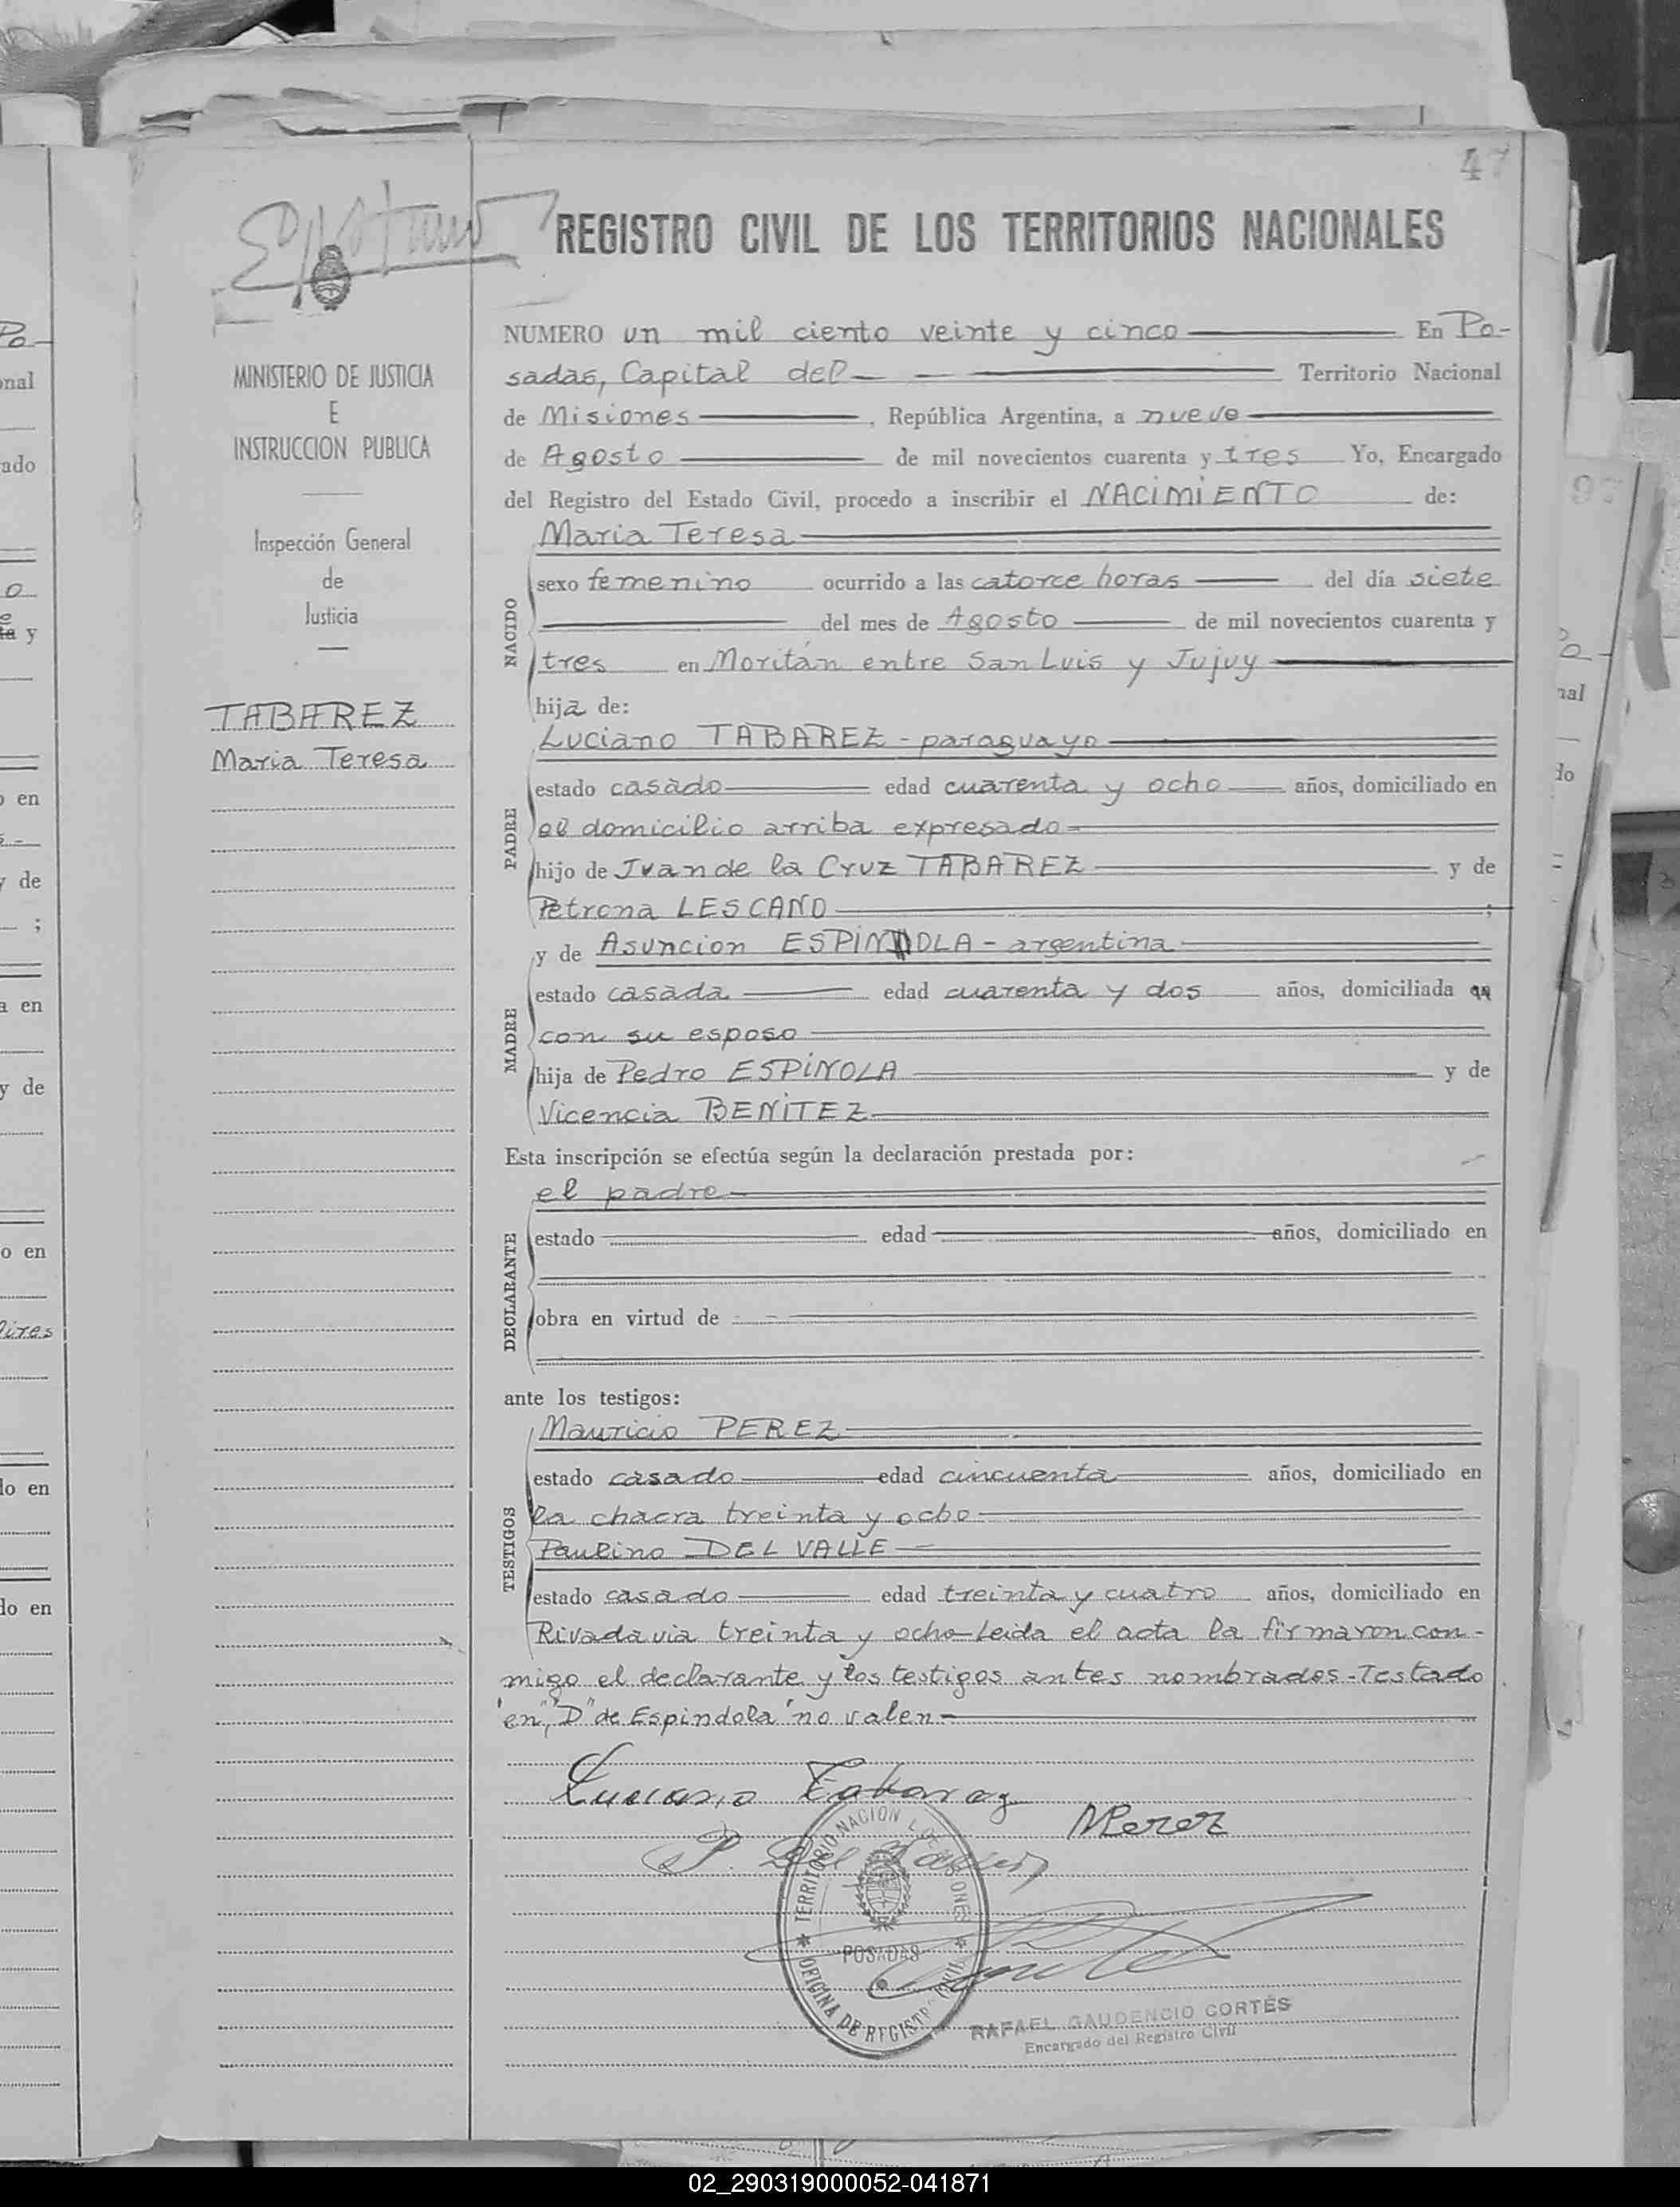 47
REGISTRO CIVIL DE LOS TERRITORIOS NACIONALES
MINISTERIO DE JUSTICIA
E
INSTRUCCION PUBLICA
Inspección General
de
Justicia
TABAREZ
Maria Teresa
NUMERO un mil ciento veinte y cinco En Po-
sadas, Capital del Territorio Nacional
de Misiones, República Argentina, a nueve
de Agosto de mil novecientos cuarenta y tres Yo, Encargado
del Registro del Estado Civil, procedo a inscribir el NACIMIENTO de:
NACIDO
Maria Teresa
sexo femenino ocurrido a las catorce horas del día siete
del mes de Agosto de mil novecientos cuarenta y
tres en Moritán entre San Luis y Jujuy
hija de:
PADRE
Luciano TABAREZ - paraguayo
estado casado edad cuarenta y ocho años, domiciliado en
el domicilio arriba expresado
hijo de Juan de la Cruz TABAREZ y de
Petrona LESCANO ;
MADRE
y de Asuncion ESPINDOLA - argentina
estado casada edad cuarenta y dos años, domiciliada
con su esposo
hija de Pedro ESPINOLA y de
Vicencia BENITEZ
Esta inscripción se efectúa según la declaración prestada por:
DECLARANTE
el padre
estado edad años, domiciliado en
obra en virtud de
ante los testigos:
TESTIGOS
Mauricio PEREZ
estado casado edad cincuenta años, domiciliado en
la chacra treinta y ocho
Paulino DEL VALLE
estado casado edad treinta y cuatro años, domiciliado en
Rivadavia treinta y ocho-Leida el acta la firmaron con-
migo el declarante y los testigos antes nombrados-Testado
"en", "D" de Espindola "no valen-
Luciano Tabarez
MPerez
P. Del Valle
TERRITORIO NACIONAL DE MISIONES
POSADAS
OFICINA DE REGISTRO CIVIL
RAFAEL GAUDENCIO CORTÉS
Encargado del Registro Civil
02_290319000052-041871